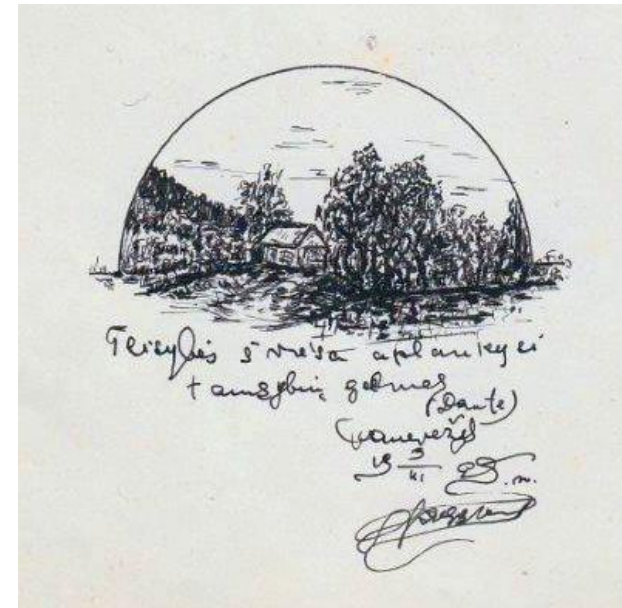 Teisybės šviesa aplankysi
tamsybių gelmes
(Dante)
Panevėžys
19 9/XI 95 m.